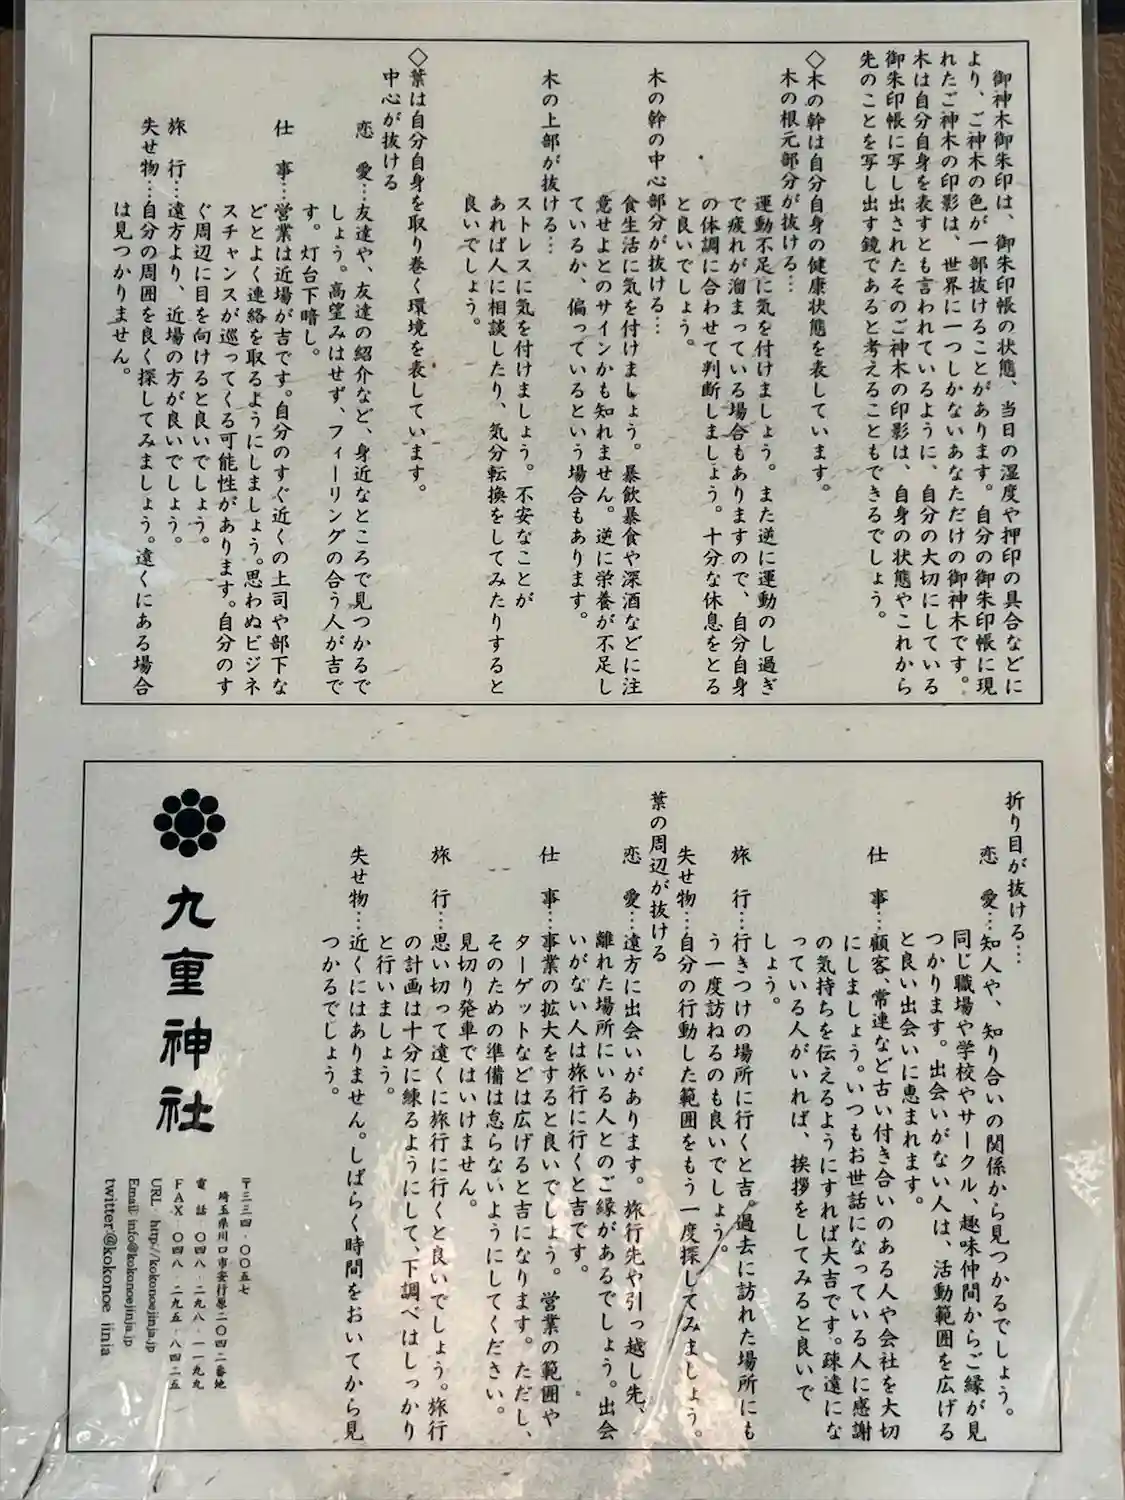 御神木御朱印は、御朱印帳の状態、当日の湿度や押印の具合などに
より、ご神木の色が一部抜けることがあります。自分の御朱印帳に現
れたご神木の印影は、世界に一つしかないあなただけの御神木です。
木は自分自身を表すとも言われているように、自分の大切にしている
御朱印帳に写し出されたそのご神木の印影は、自身の状態やこれから
先のことを写し出す鏡であると考えることもできるでしょう。
◇木の幹は自分自身の健康状態を表しています。
木の根元部分が抜ける…
運動不足に気を付けましょう。また逆に運動のし過ぎ
で疲れが溜まっている場合もありますので、自分自身
の体調に合わせて判断しましょう。十分な休息をとる
と良いでしょう。
木の幹の中心部分が抜ける…
食生活に気を付けましょう。暴飲暴食や深酒などに注
意せよとのサインかも知れません。逆に栄養が不足し
ているか、偏っているという場合もあります。
木の上部が抜ける…
ストレスに気を付けましょう。不安なことが
あれば人に相談したり、気分転換をしてみたりすると
良いでしょう。
◇葉は自分自身を取り巻く環境を表しています。
中心が抜ける
恋　愛…友達や、友達の紹介など、身近なところで見つかるで
しょう。高望みはせず、フィーリングの合う人が吉で
す。灯台下暗し。
仕　事…営業は近場が吉です。自分のすぐ近くの上司や部下な
どとよく連絡を取るようにしましょう。思わぬビジネ
スチャンスが巡ってくる可能性があります。自分のす
ぐ周辺に目を向けると良いでしょう。
旅　行…遠方より、近場の方が良いでしょう。
失せ物…自分の周囲を良く探してみましょう。遠くにある場合
は見つかりません。
折り目が抜ける…
恋　愛…知人や、知り合いの関係から見つかるでしょう。
同じ職場や学校やサークル、趣味仲間からご縁が見
つかります。出会いがない人は、活動範囲を広げる
と良い出会いに恵まれます。
仕　事…顧客、常連など古い付き合いのある人や会社を大切
にしましょう。いつもお世話になっている人に感謝
の気持ちを伝えるようにすれば大吉です。疎遠にな
っている人がいれば、挨拶をしてみると良いで
しょう。
旅　行…行きつけの場所に行くと吉。過去に訪れた場所にも
う一度訪ねるのも良いでしょう。
失せ物…自分の行動した範囲をもう一度探してみましょう。
葉の周辺が抜ける
恋　愛…遠方に出会いがあります。旅行先や引っ越し先、
離れた場所にいる人とのご縁があるでしょう。出会
いがない人は旅行に行くと吉です。
仕　事…事業の拡大をすると良いでしょう。営業の範囲や
ターゲットなどは広げると吉になります。ただし、
そのための準備は怠らないようにしてください。
見切り発車ではいけません。
旅　行…思い切って遠くに旅行に行くと良いでしょう。旅行
の計画は十分に練るようにして、下調べはしっかり
と行いましょう。
失せ物…近くにはありません。しばらく時間をおいてから見
つかるでしょう。
九重神社
〒三三四‐〇〇五七
埼玉県川口市安行原二〇四二番地
電　話‐〇四八‐二九八‐一一九九
ＦＡＸ‐〇四八‐二九五‐八四二五
URL　http://kokonoejinja.jp
Email　info@kokonoejinja.jp
twitter@kokonoe_jinja